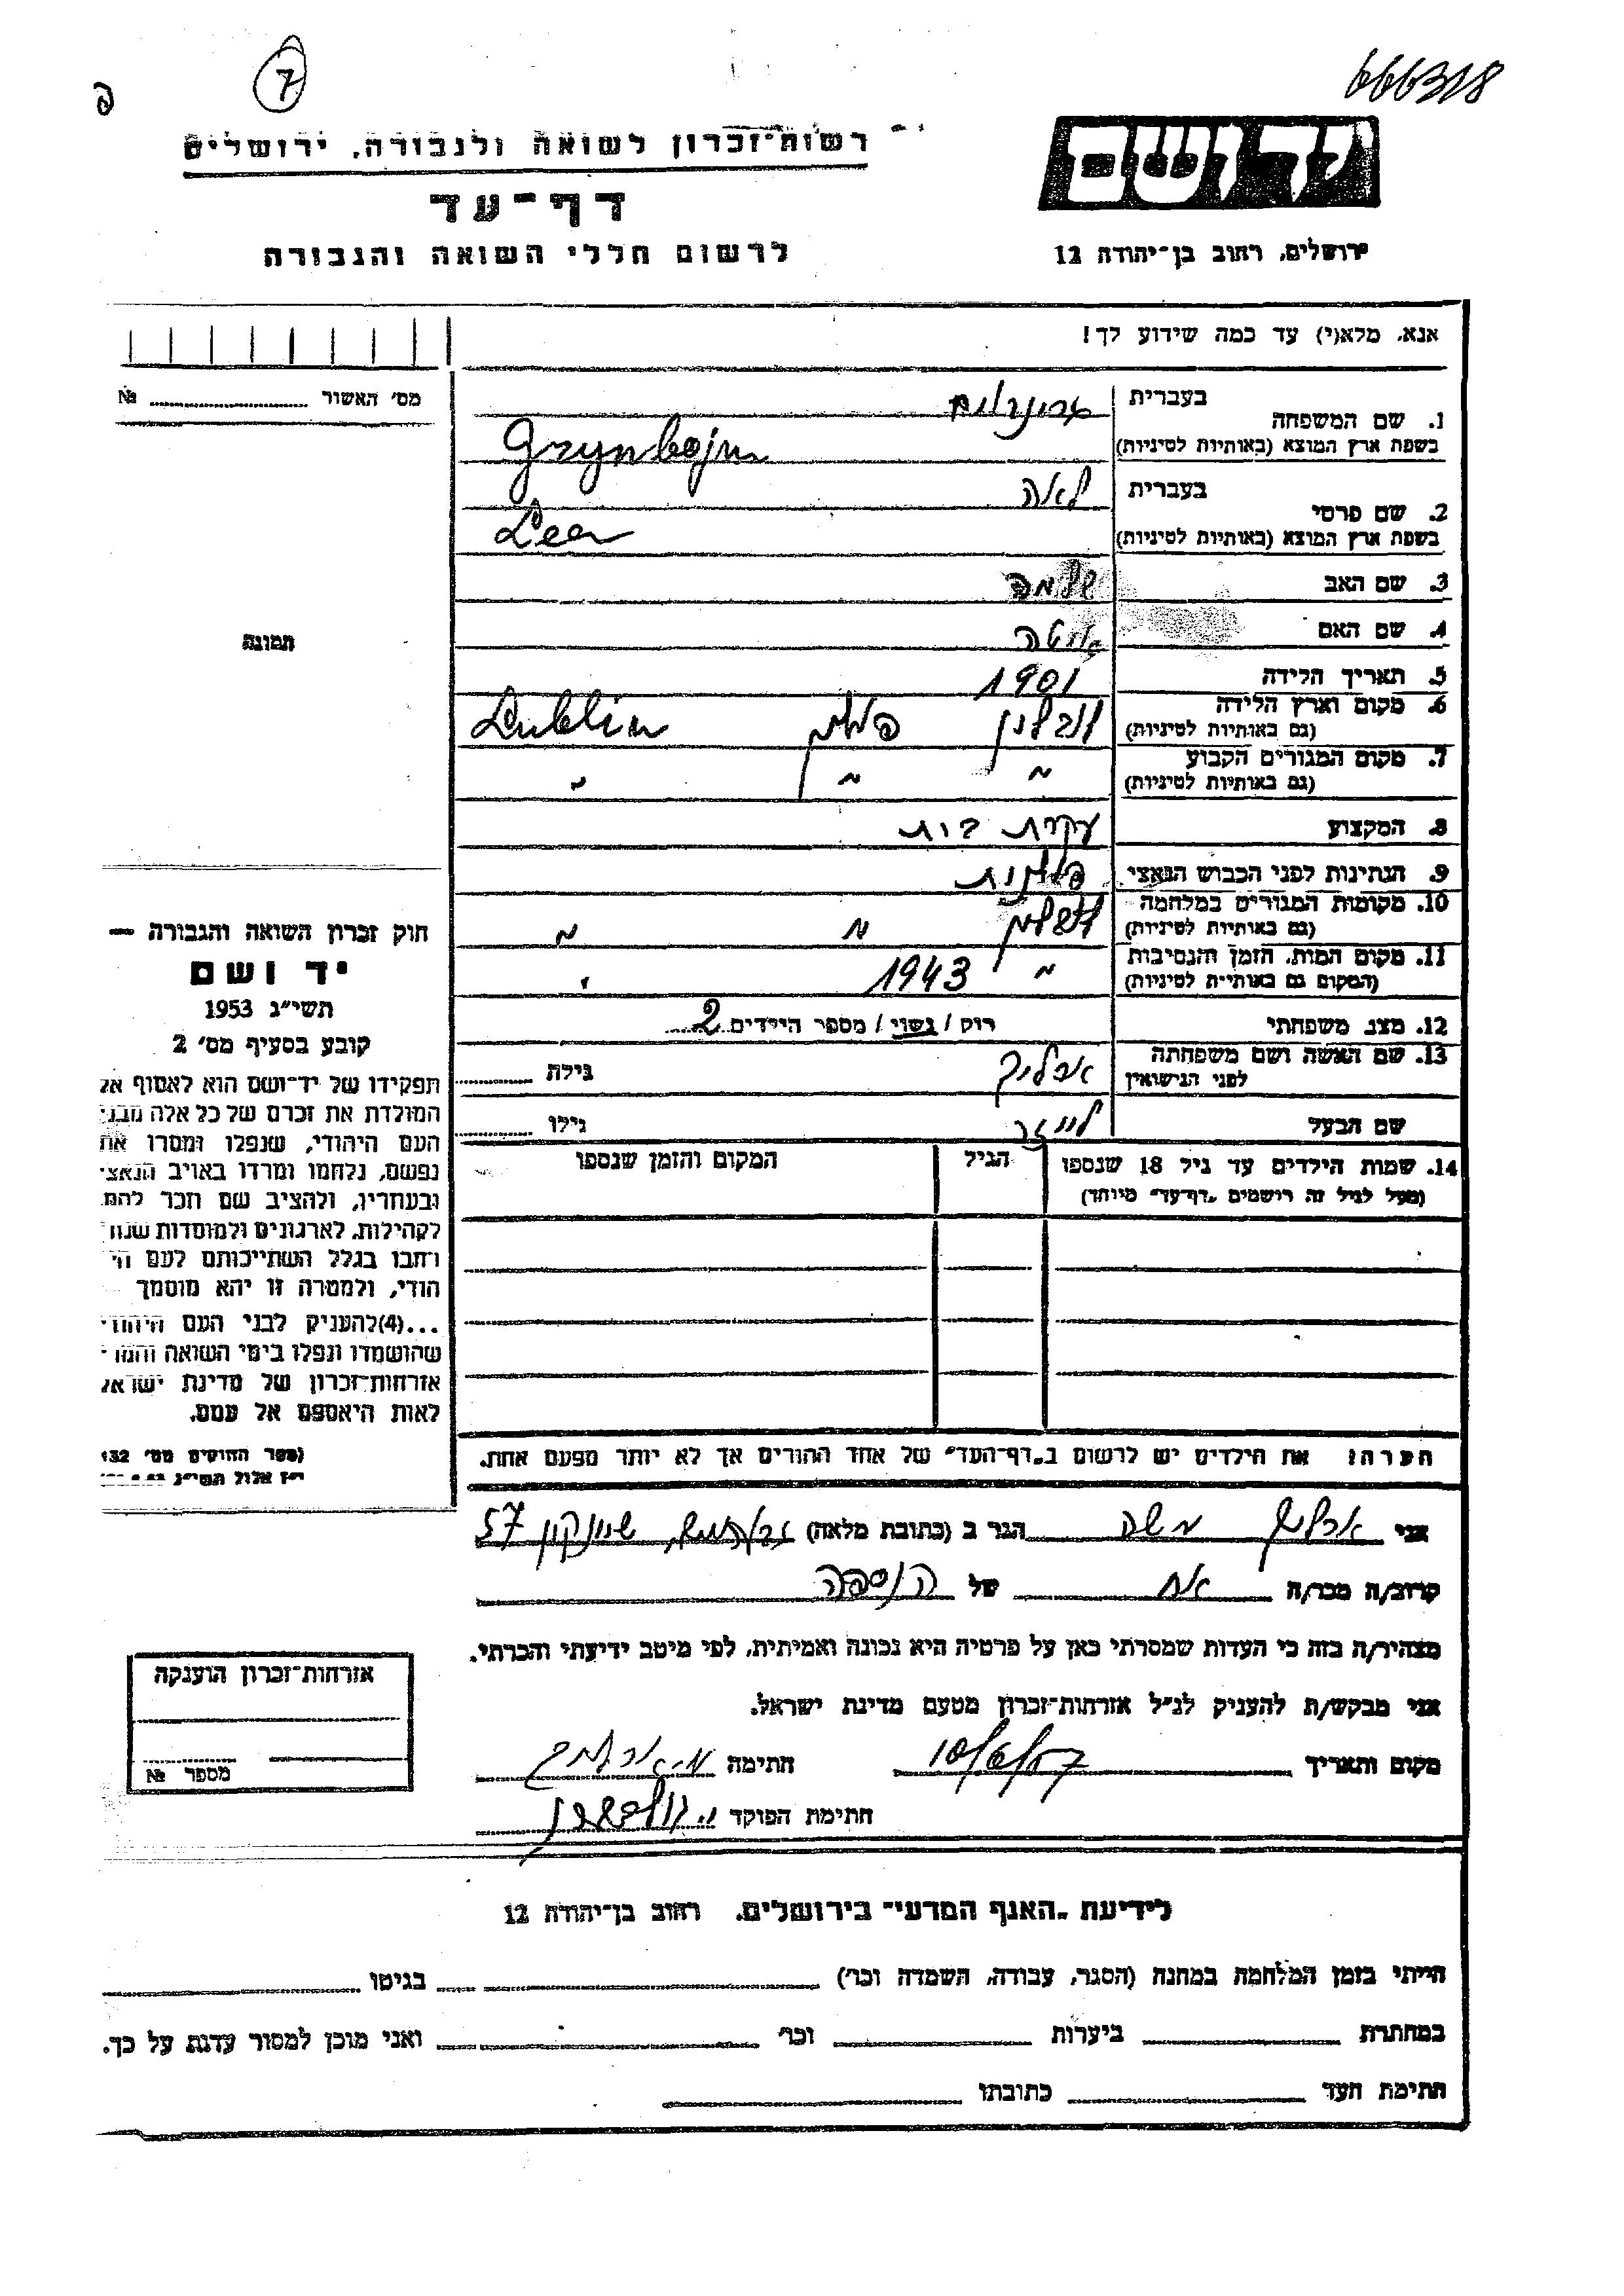 666318
7
יד ושם
ירושלים, רחוב בן־יהודה 12
רשות־זכרון לשואה ולגבורה, ירושלים
דף־עד
לרשום חללי השואה והגבורה
אנא, מלא(י) עד כמה שידוע לך!
מס' האשור №
תמונה
1. שם המשפחה
בעברית גרינבוים
בשפת ארץ המוצא (באותיות לטיניות) Grynbojm
2. שם פרטי
בעברית לאה
בשפת ארץ המוצא (באותיות לטיניות) Lea
3. שם האב שלמה
4. שם האם
5. תאריך הלידה 1901
6. מקום וארץ הלידה
(גם באותיות לטיניות) לובלין פולין Lublin
7. מקום המגורים הקבוע
(גם באותיות לטיניות) " " "
8. המקצוע עקרת בית
9. הנתינות לפני הכבוש הנאצי פולנית
10. מקומות המגורים במלחמה
(גם באותיות לטיניות) " "
11. מקום המות, הזמן והנסיבות
(המקום גם באותיות לטיניות) " 1943 "
12. מצב משפחתי רווק / נשוי / מספר הילדים 2
13. שם האשה ושם משפחתה
לפני הנישואין ארליך גילה
שם הבעל גילו
14. שמות הילדים עד גיל 18 שנספו
(מעל לגיל זה רושמים "דף־עד" מיוחד)
הגיל
המקום והזמן שנספו
הערה: את הילדים יש לרשום ב"דף־העד" של אחד ההורים אך לא יותר מפעם אחת.
חוק זכרון השואה והגבורה —
יד ושם
תשי"ג 1953
קובע בסעיף מס' 2
תפקידו של יד־ושם הוא לאסוף אל
המולדת את זכרם של כל אלה מבני
העם היהודי, שנפלו ומסרו את
נפשם, נלחמו ומרדו באויב הנאצי
ובעוזריו, ולהציב שם וזכר להם,
לקהילות, לארגונים ולמוסדות שנח
רבו בגלל השתייכותם לעם הי
הודי, ולמטרה זו יהא מוסמך
...(4)להעניק לבני העם היהודי
שהושמדו ונפלו בימי השואה והמר
אזרחות־זכרון של מדינת ישראל
לאות היאספם אל עמם.
(ספר החוקים מס' 132
י"ז אלול תשי"ג
אני ארליך משה הגר ב (כתובת מלאה) 57
קרוב/ה מכר/ה אח של הנספה
מצהיר/ה בזה כי העדות שמסרתי כאן על פרטיה היא נכונה ואמיתית, לפי מיטב ידיעתי והכרתי.
אני מבקש/ת להעניק לנ"ל אזרחות־זכרון מטעם מדינת ישראל.
מקום ותאריך 10/6/57 חתימה מ. ארליך
חתימת הפוקד
אזרחות־זכרון הוענקה
מספר №
לידיעת "האגף המדעי" בירושלים, רחוב בן־יהודה 12
הייתי בזמן המלחמה במחנה (הסגר, עבודה, השמדה וכו') בגיטו
במחתרת ביערות וכו' ואני מוכן למסור עדות על כך.
חתימת העד כתובתו